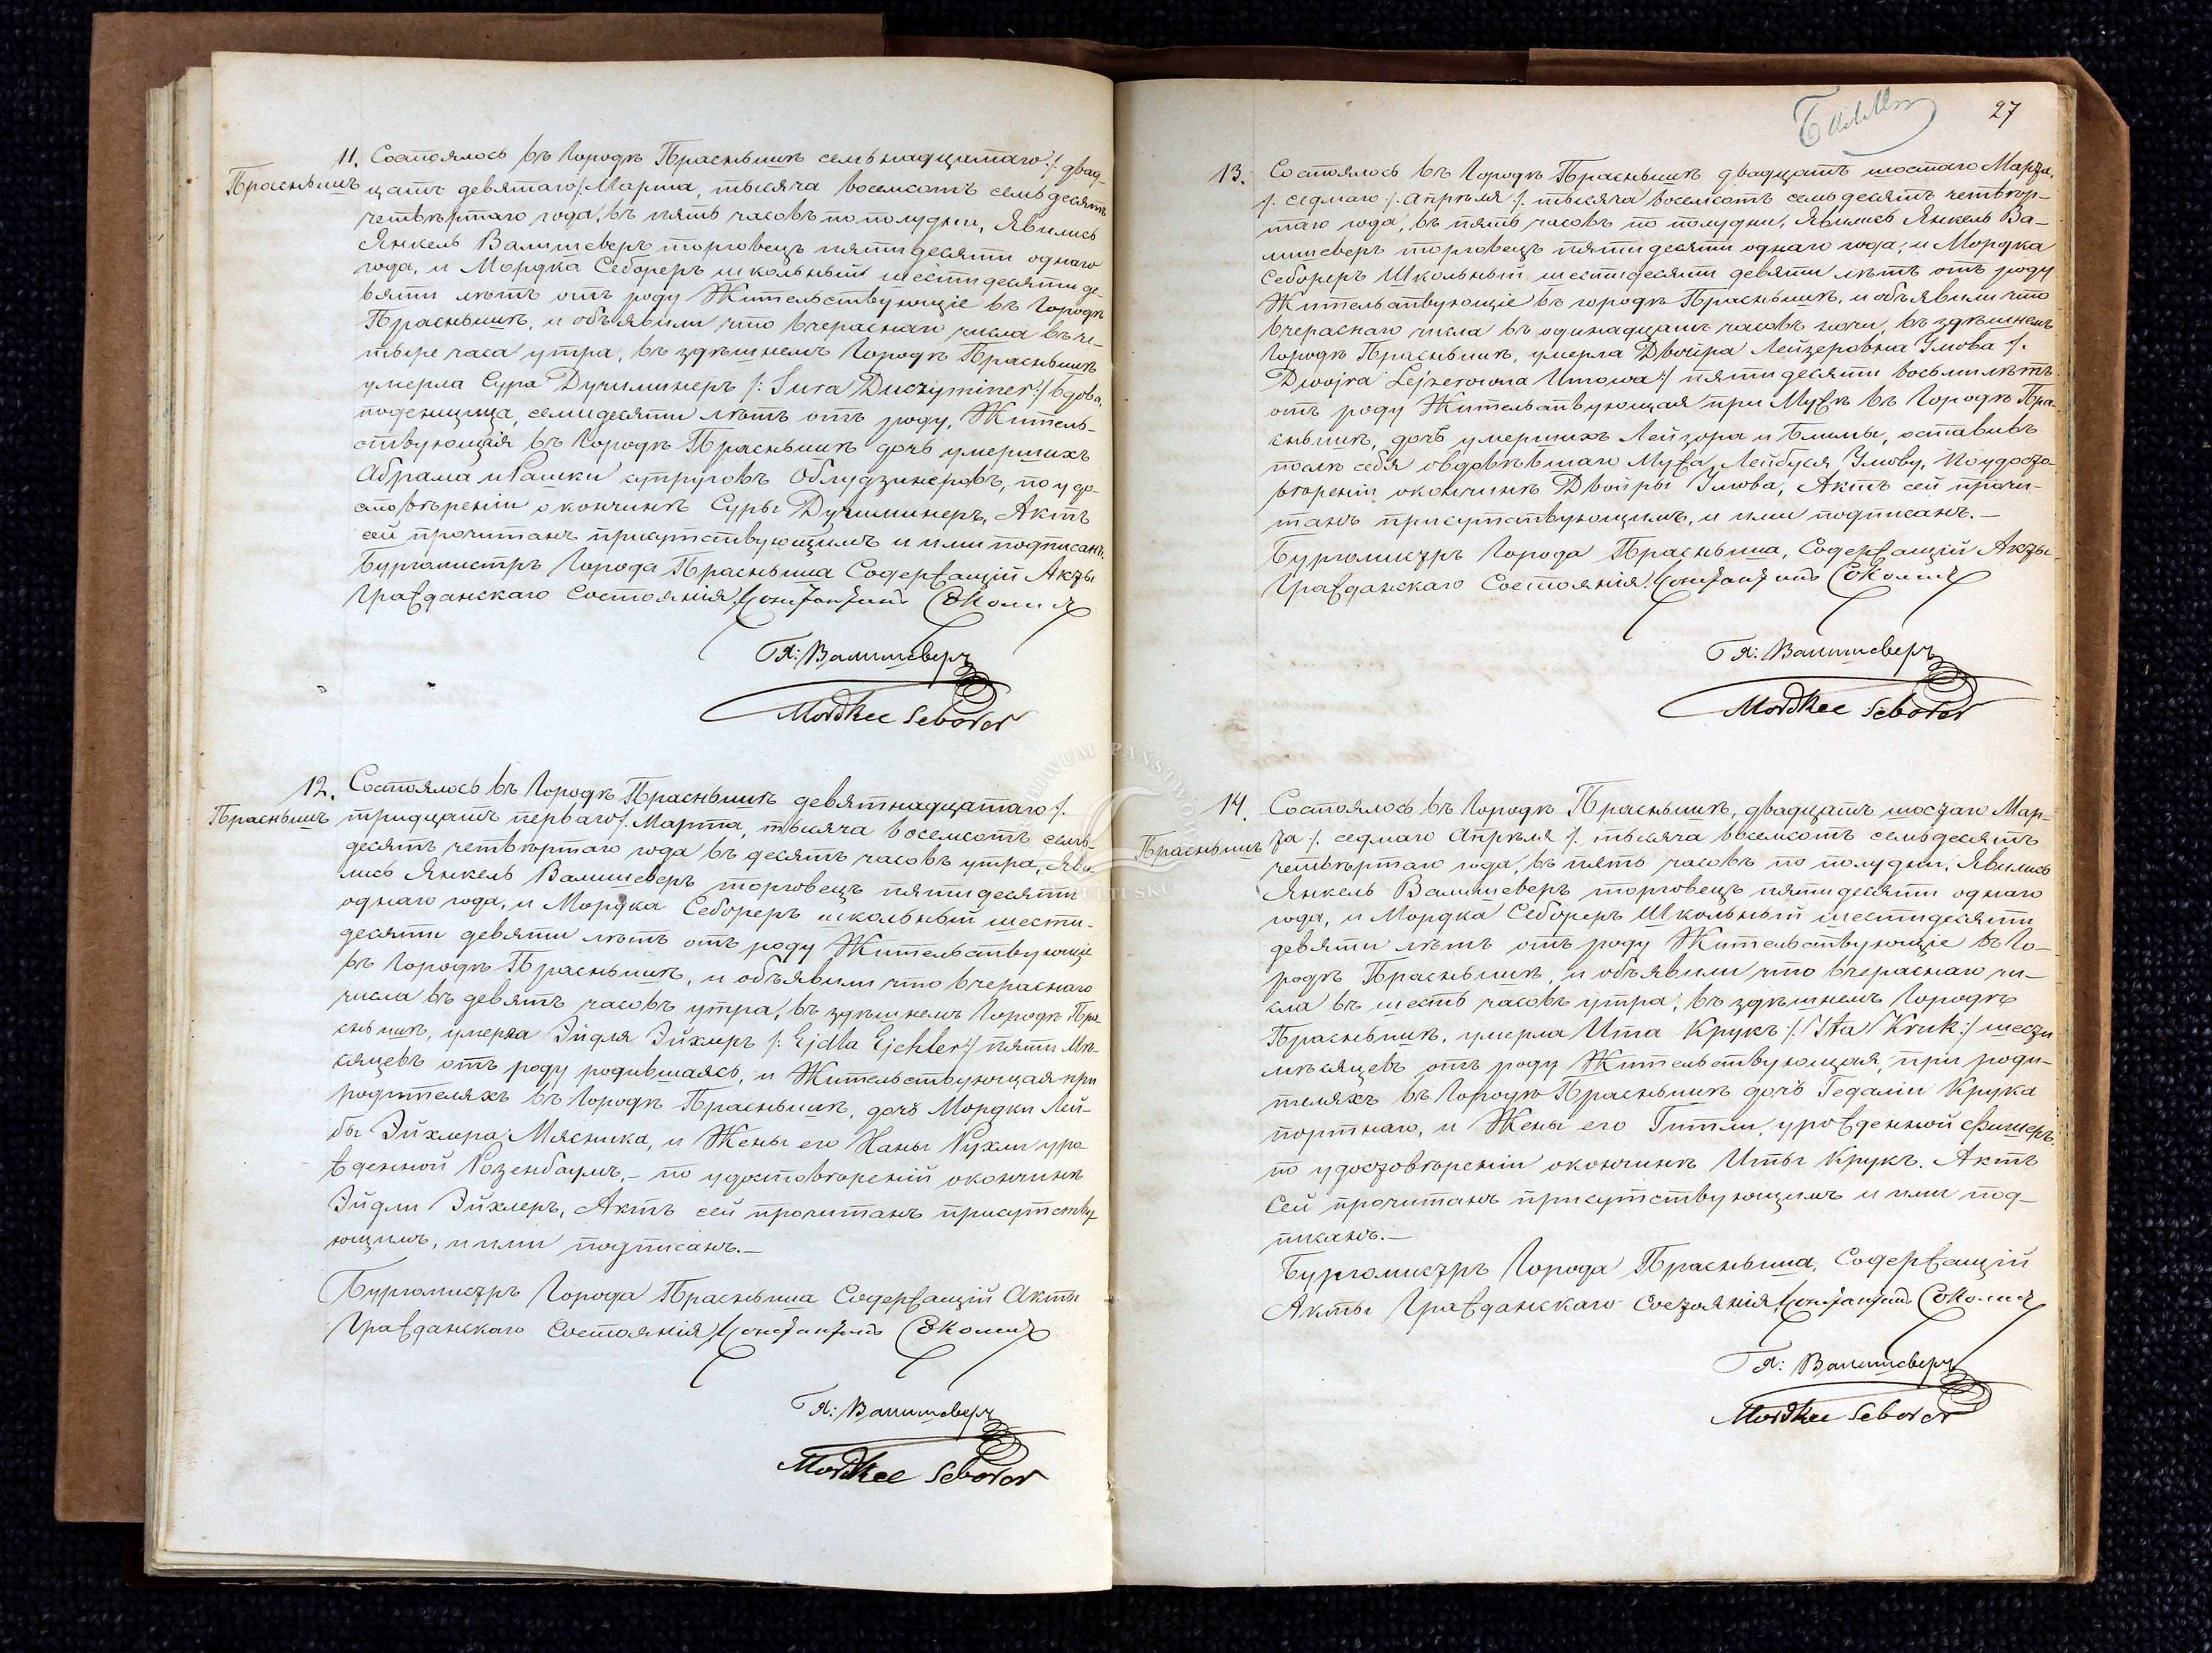 11. Состоялось въ Городѣ Праснышѣ семьнадцатаго /: двад-
Праснышъ
цать девятаго :/ Марта, тысяча восемсотъ семьдесятъ
четвѣртаго года, въ пять часовъ по полудни, Явились
Янкель Валишеверъ торговецъ пятидесяти однаго
года, и Мордка Себореръ школьный шестидесяти де-
вяти лѣтъ отъ роду Жительствующіе въ Городѣ
Праснышѣ, и объявили что вчераснаго числа въ че-
тыре часа утра, въ здѣшнемъ Городѣ Праснышѣ
умерла Сура Дучиминеръ /: Sura Duczyminer :/ вдова,
поденщица, семидесяти лѣтъ отъ роду, Житель-
ствующая въ Городѣ Праснышѣ дочь умершихъ
Абрама и Рашки супруговъ Облудзинеровъ, по удо-
стовѣреніи окончинѣ Суры Дучиминеръ, Актъ
сей прочитанъ присутствующимъ и ими подписанъ.
Бургомистръ Города Прасныша Содержащій Акты
Гражданскаго Состоянія Константинъ Соколи
Я: Валишеверъ
Mordkee Seborer
12. Состоялось въ Городѣ Праснышѣ девятнадцатаго /:
Праснышъ
тридцать перваго :/ Марта, тысяча восемсотъ семь-
десятъ четвѣртаго года въ десять часовъ утра, Яви-
лись Янкель Валишеверъ торговецъ пятидесяти
однаго года, и Мордка Себореръ школьный шести-
десяти девяти лѣтъ отъ роду Жительствующіе
въ Городѣ Праснышѣ, и объявили что вчераснаго
числа въ девять часовъ утра, въ здѣшнемъ Городѣ Пра-
снышѣ, умерла Эйдля Эйхлеръ /: Ejdla Ejchler :/ пяти Мѣ-
сяцевъ отъ роду родившаясь, и Жительствующая при
родителяхъ въ Городѣ Праснышѣ, дочь Мордки Лей-
бы Эйхлера Мясника, и Жены его Ханы Рухли уро-
жденной Розенбаумъ, - по удостовѣреній окончинѣ
Эйдли Эйхлеръ, Актъ сей прочитанъ присутству-
ющимъ, и ими подписанъ. -
Бургомистръ Города Прасныша Содержащій Акты
Гражданскаго Состоянія Константинъ Соколи
Я: Валишеверъ
Mordkee Seborer
27
13. Состоялось въ Городѣ Праснышѣ двадцать шостаго Марта,
/: седмаго :/ Апрѣля /: тысяча восемсотъ семьдесятъ четвѣр-
таго года, въ пять часовъ по полудни, Явились Янкель Ва-
лишеверъ торговецъ пятидесяти однаго года, и Мордка
Себореръ Школьный шестидесяти девяти лѣтъ отъ роду
Жительствующіе въ городѣ Праснышѣ, и объявили что
вчераснаго числа въ одинадцать часовъ ночи, въ здѣшнемъ
Городѣ Праснышѣ, умерла Двойра Лейзеровна Умова /:
Dwojra Lejzerowna Umowa :/ пятидесяти восьми лѣтъ
отъ роду Жительствующая при Мужѣ въ Городѣ Пра-
снышѣ, дочь умершихъ Лейзора и Блимы, оставивъ
послѣ себя овдовѣвшаго Мужа, Лейбуся Умову, По удосто-
вѣреніи окончинѣ Двойры Умова, Актъ сей прочи-
танъ присутствующимъ, и ими подписанъ. -
Бургомистръ Города Прасныша, Содержащій Акты
Гражданскаго Состоянія Константинъ Соколи
Я: Валишеверъ
Mordkee Seborer
14. Состоялось въ Городѣ Праснышѣ, двадцать шостаго Мар-
Праснышъ
та /: седмаго Апрѣля /: тысяча восемсотъ семьдесятъ
четвѣртаго года, въ пять часовъ по полудни, Явились
Янкель Валишеверъ торговецъ пятидесяти однаго
года, и Мордка Себореръ Школьный шестидесяти
девяти лѣтъ отъ роду Жительствующіе въ Го-
родѣ Праснышѣ, и объявили что вчераснаго чи-
сла въ шесть часовъ утра, въ здѣшнемъ Городѣ
Праснышѣ, умерла Ита Крукъ /: Ita Kruk :/ шести
мѣсяцевъ отъ роду Жительствующая, при роди-
теляхъ въ Городѣ Праснышѣ дочь Гедаліи Крука
портнаго, и Жены его Гитли, урожденной Фишеръ,
по удостовѣреніи окончинѣ Иты Крукъ. Актъ
Сей прочитанъ присутствующимъ и ими под-
писанъ. -
Бургомистръ Города Прасныша, Содержащій
Акты Гражданскаго Состоянія Константинъ Соколи
Я: Валишеверъ
Mordkee Seborer